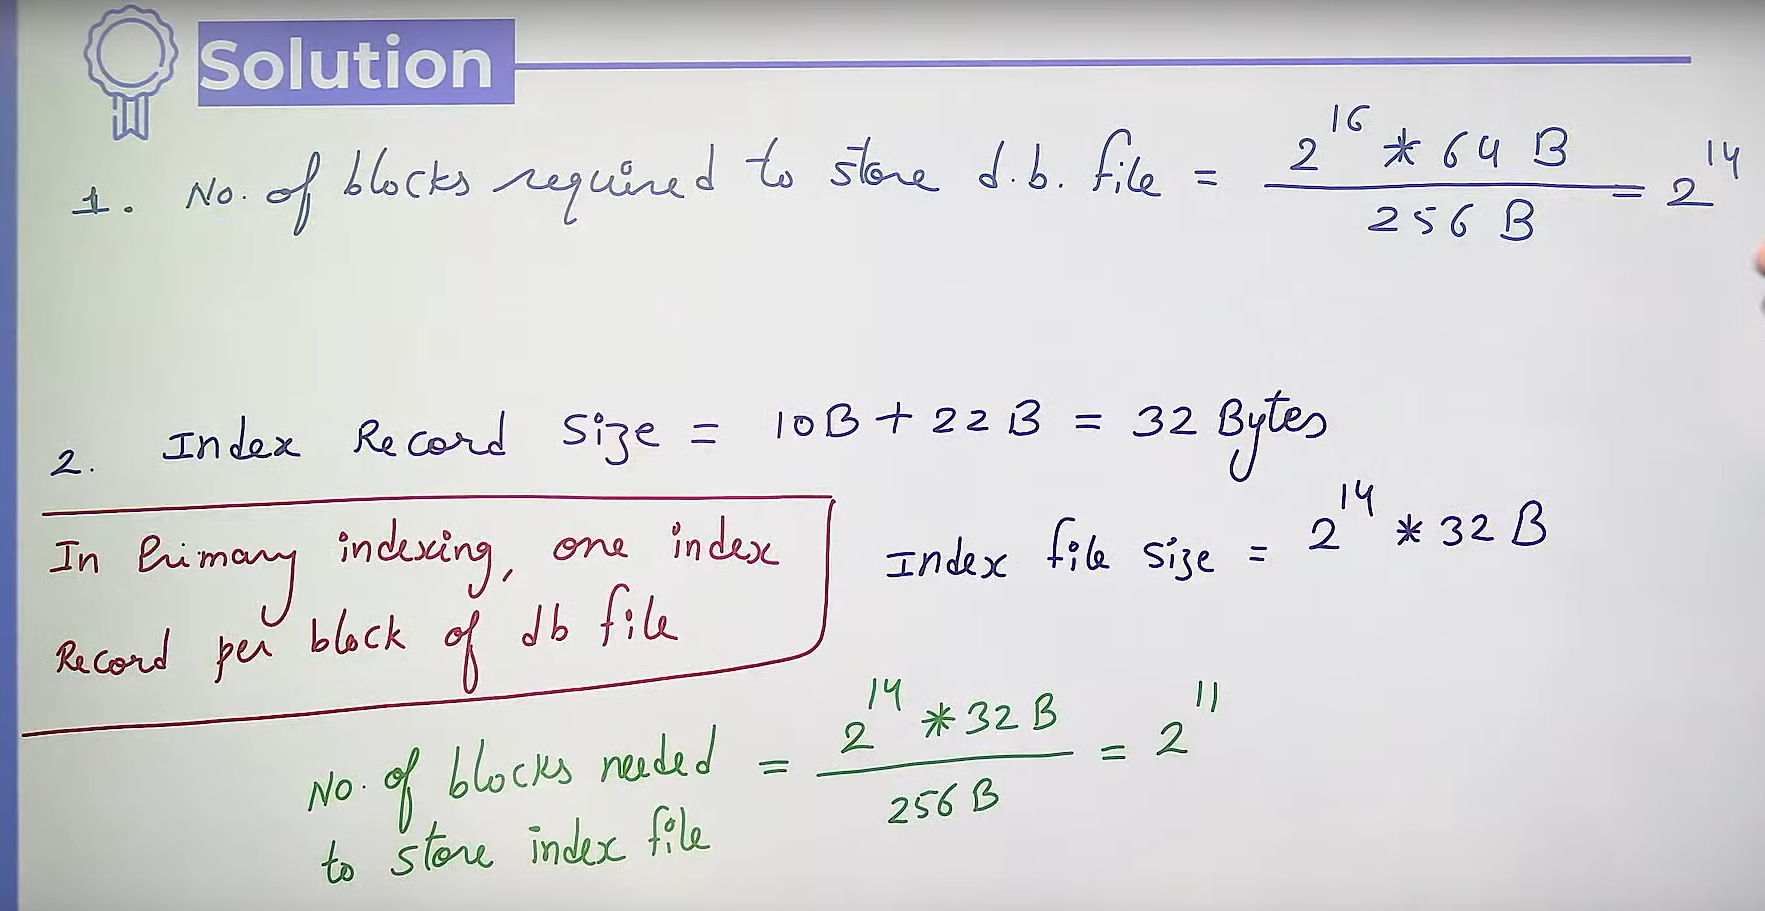 Solution
1. No. of blocks required to store d.b. file = 2^16 * 64 B / 256 B = 2^14
2. Index Record Size = 10B + 22B = 32 Bytes
In Primary indexing, one index
Record per block of db file
Index file size = 2^14 * 32 B
No. of blocks needed
to store index file
= 2^14 * 32 B / 256 B = 2^11